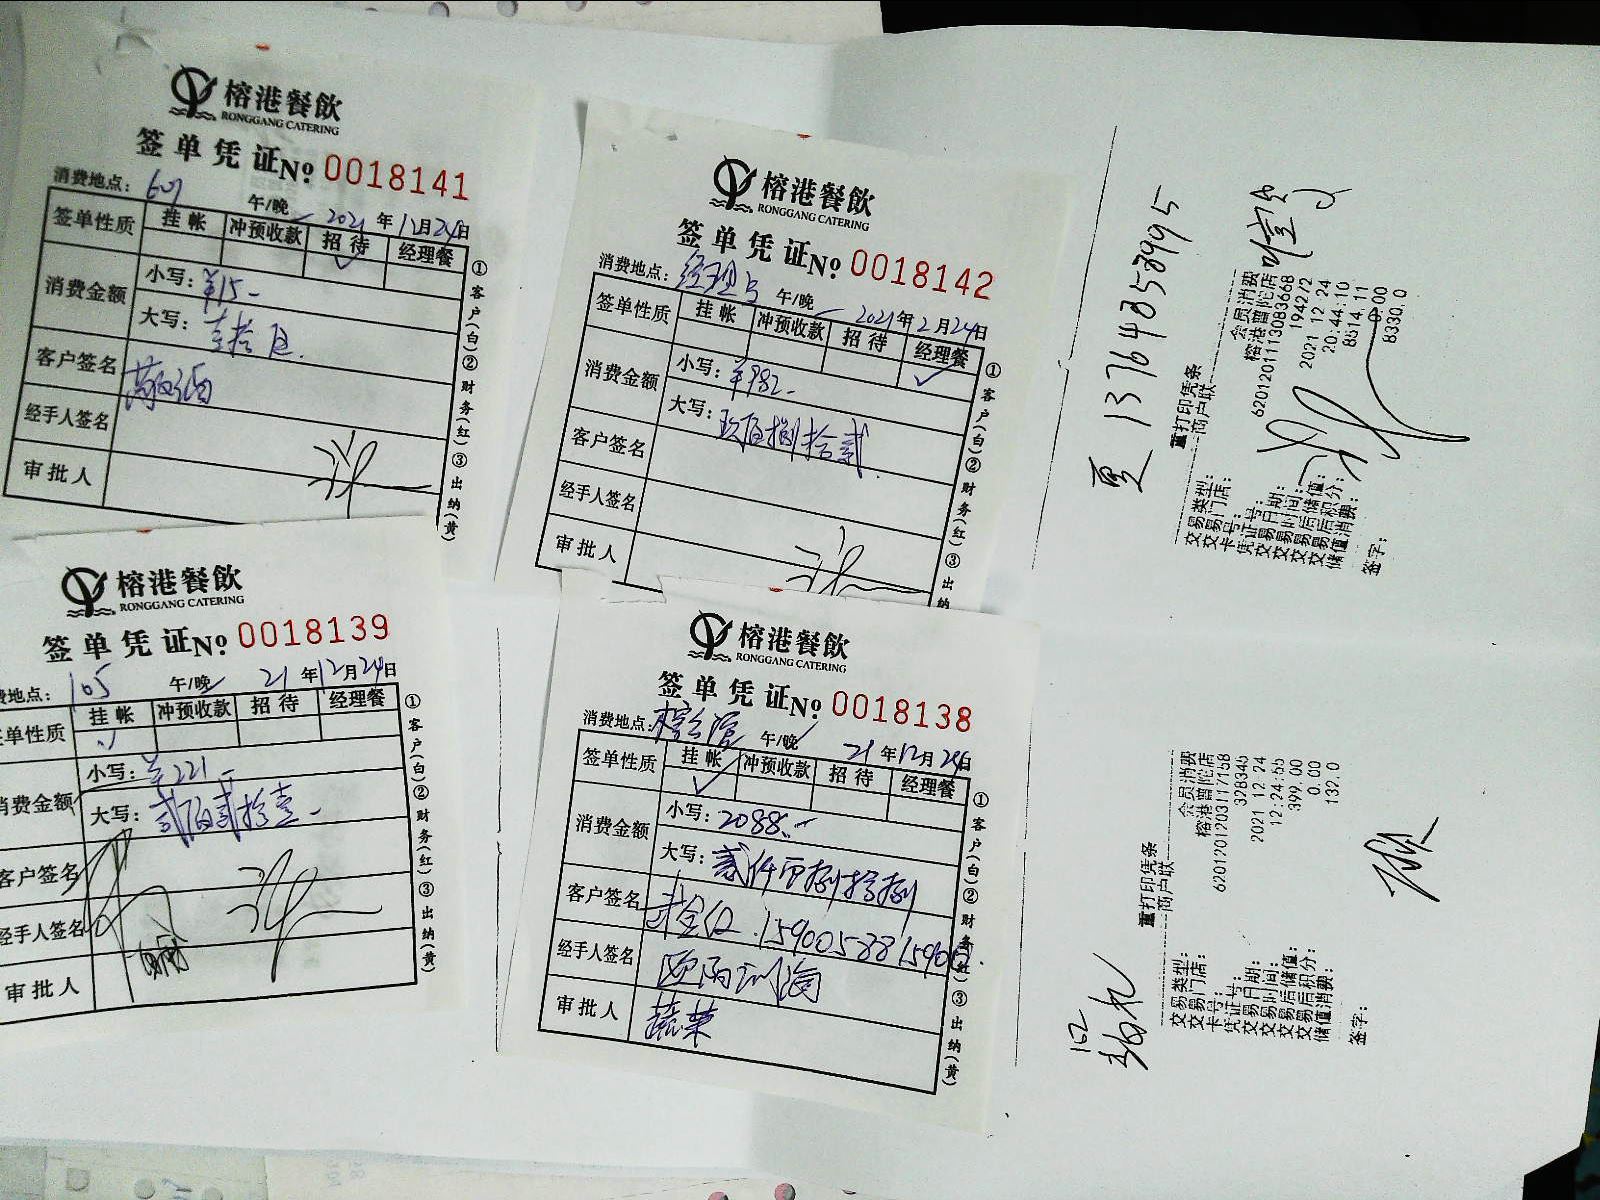 榕港餐飲
RONGGANG CATERING
签单凭证 No 0018141
消费地点： 607 午/晚 2021年12月24日
签单性质 挂帐 冲预收款 招待 经理餐
✓
消费金额 小写：¥15-
大写：壹拾伍
客户签名
经手人签名
审批人
①客户(白)②财务(红)③出纳(黄)
榕港餐飲
RONGGANG CATERING
签单凭证 No 0018142
消费地点： 午/晚 2021年2月24日
签单性质 挂帐 冲预收款 招待 经理餐
✓
消费金额 小写：¥982-
大写：玖佰捌拾贰
客户签名
经手人签名
审批人
①客户(白)②财务(红)③出纳
榕港餐飲
RONGGANG CATERING
签单凭证 No 0018139
费地点： 105 午/晚 21年12月24日
签单性质 挂帐 冲预收款 招待 经理餐
✓
消费金额 小写：¥221-
大写：贰佰贰拾壹-
客户签名
经手人签名
审批人
①客户(白)②财务(红)③出纳(黄)
榕港餐飲
RONGGANG CATERING
签单凭证 No 0018138
消费地点： 午/晚 21年12月24日
签单性质 挂帐 冲预收款 招待 经理餐
✓
消费金额 小写：2088.-
大写：贰仟零捌拾捌
客户签名
经手人签名
审批人
①客户(白)②财务(红)③出纳(黄)
夏 137648352995
重打印凭条
---商户联---
交易类型： 会员消费
交易门店： 榕港普陀店
卡号： 6201201113083668
凭证号： 194272
交易日期： 2021 12 24
交易时间： 20:44:10
交易后储值： 8614.11
交易后积分： 0.00
储值消费： 8330.0
签字：
重打印凭条
---商户联---
交易类型： 会员消费
交易门店： 榕港普陀店
卡号： 6201201203117158
凭证号： 328345
交易日期： 2021 12 24
交易时间： 12:24:55
交易后储值： 399.00
交易后积分： 0.00
储值消费： 132.0
签字：